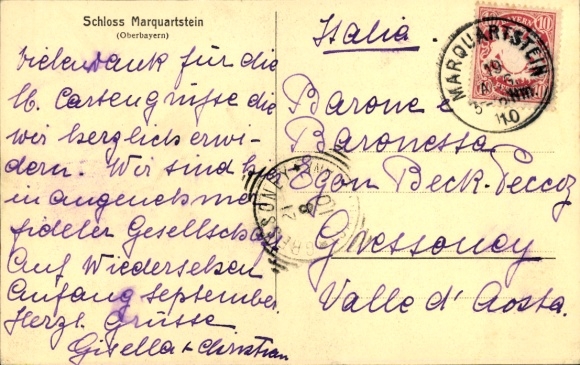 Schloss Marquartstein
(Oberbayern)
Vielendank für die
lb. Cartengrüsse die
wir herzlich erwi-
dern. Wir sind hr
in angenehme
fideler Gesellschaft
Auf Wiedersehen
Anfang September
Herzl. Grüsse
Gisella + Christian
Italia.
Barone e
Baronessa
Egon Beck-Peccoz
Gressoney
Valle d'Aosta.
BAYERN 10
MARQUARTSTEIN
19
10
GRESSONEY
21
8
10